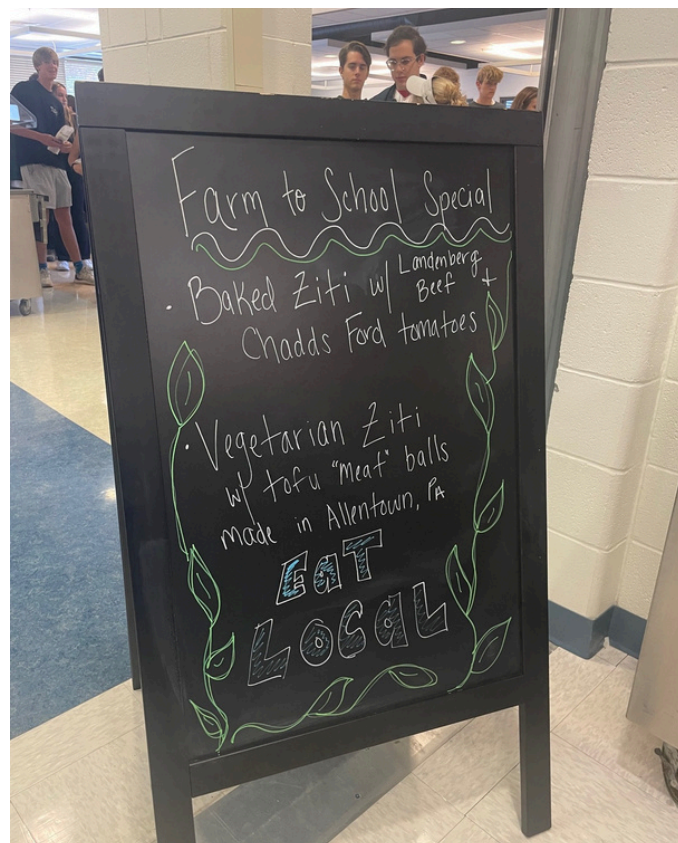 Farm to School Special
· Baked Ziti w/ Landenberg Beef +
Chadds Ford tomatoes
· Vegetarian Ziti
w/ tofu "meat" balls
made in Allentown, PA
EaT
LOCaL